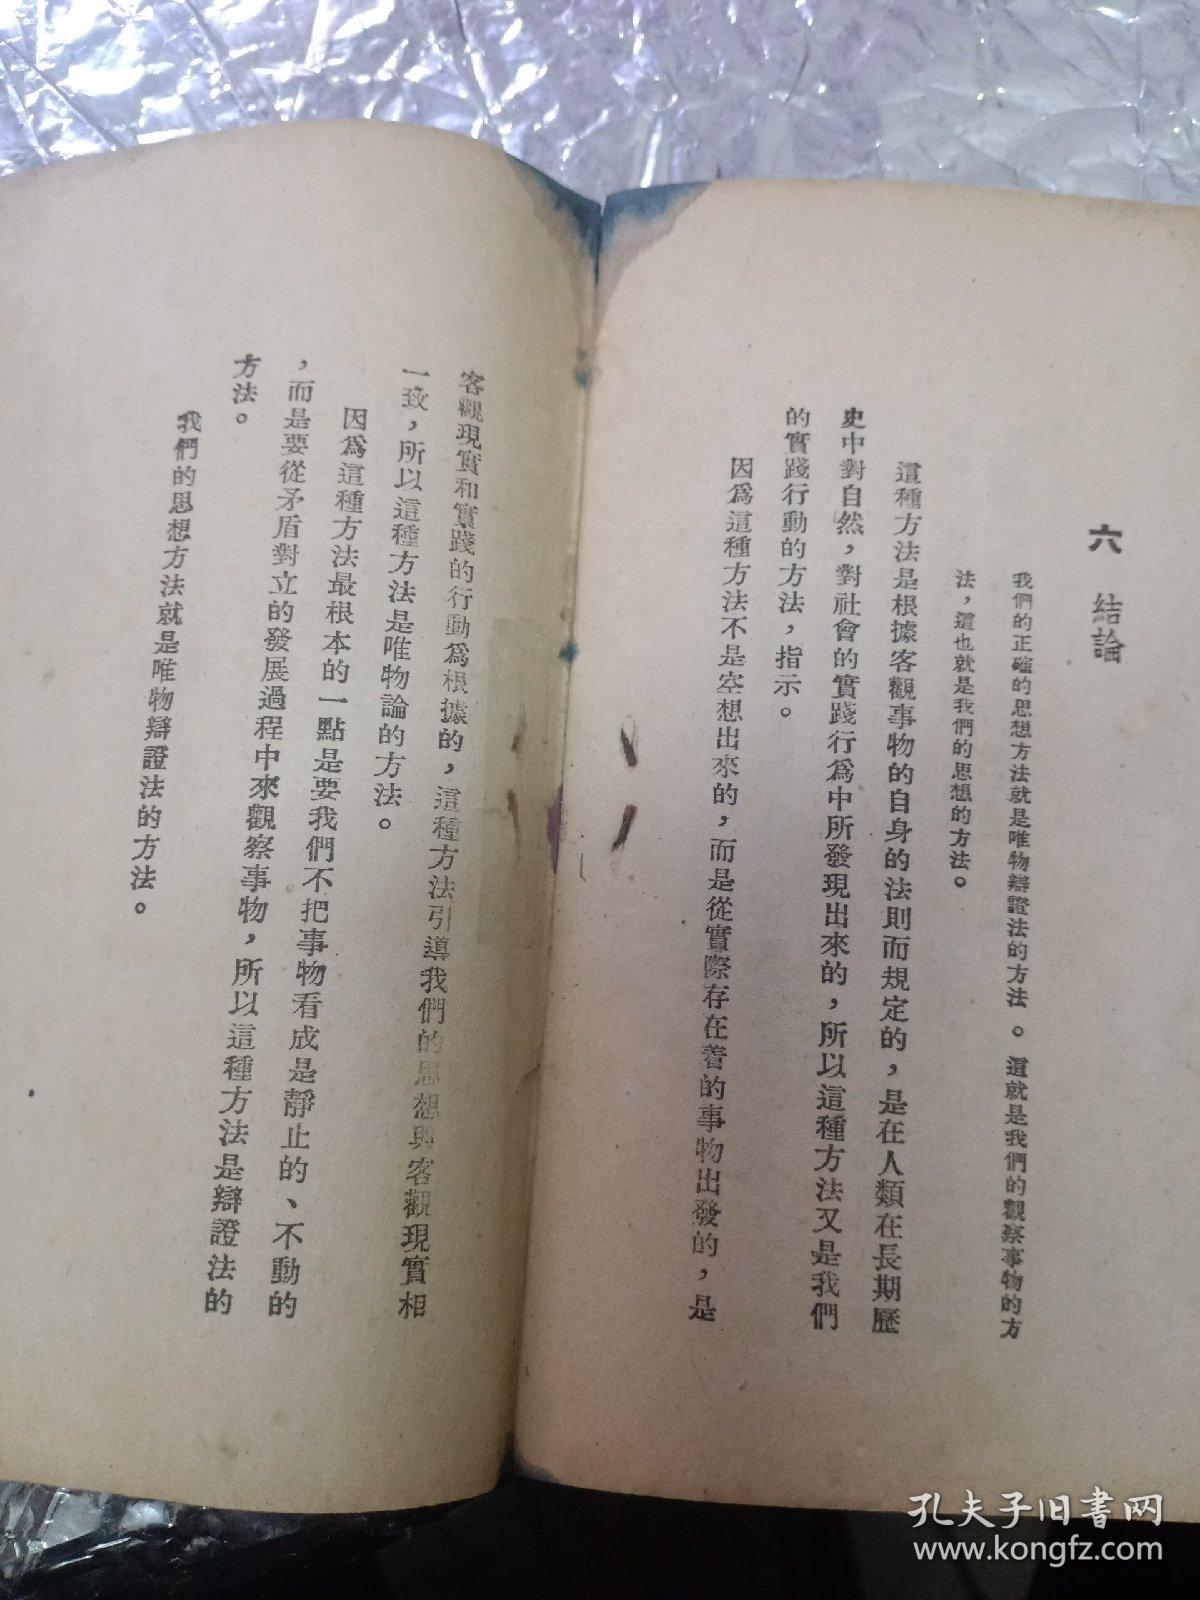 六　結論
我們的正確的思想方法就是唯物辯證法的方法。這就是我們的觀察事物的方
法，這也就是我們的思想的方法。
這種方法是根據客觀事物的自身的法則而規定的，是在人類在長期歷
史中對自然，對社會的實踐行爲中所發現出來的，所以這種方法又是我們
的實踐行動的方法，指示。
因爲這種方法不是空想出來的，而是從實際存在着的事物出發的，是
客觀現實和實踐的行動爲根據的，這種方法引導我們的思想與客觀現實相
一致，所以這種方法是唯物論的方法。
因爲這種方法最根本的一點是要我們不把事物看成是靜止的、不動的
，而是要從矛盾對立的發展過程中來觀察事物，所以這種方法是辯證法的
方法。
我們的思想方法就是唯物辯證法的方法。
孔夫子旧書网
www.kongfz.com